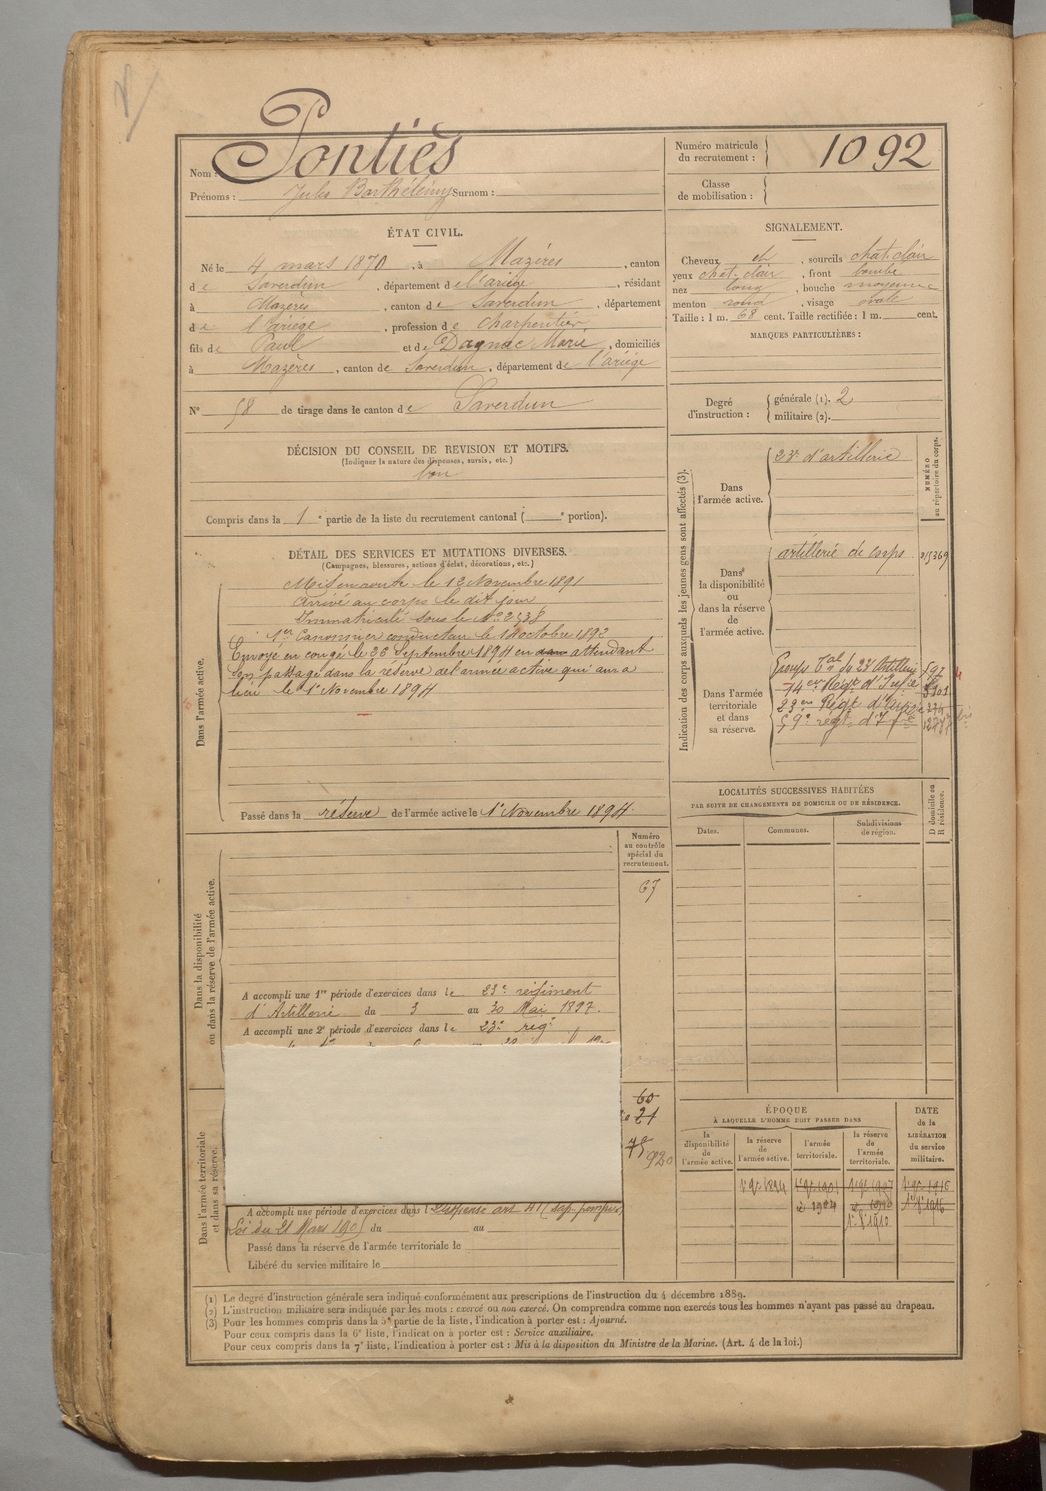 Nom : Pontiès
Prénoms : Jules Barthélémy Surnom :
Numéro matricule du recrutement : 1092
Classe de mobilisation :
ÉTAT CIVIL.
Né le 4 mars 1870, à Mazères, canton
de Saverdun, département de l'ariège, résidant
à Mazères, canton de Saverdun, département
de l'ariège, profession de charpentier
fils de Paul et de Dagnac Marie, domiciliés
à Mazères, canton de Saverdun, département de l'ariège
N° 58 de tirage dans le canton de Saverdun
SIGNALEMENT.
Cheveux ch, sourcils chat. clair
yeux chat. clair, front bombé
nez long, bouche moyenne
menton rond, visage ovale
Taille : 1 m. 68 cent. Taille rectifiée : 1 m. cent.
MARQUES PARTICULIÈRES :
Degré d'instruction :
générale (1). 2
militaire (2).
DÉCISION DU CONSEIL DE REVISION ET MOTIFS.
(Indiquer la nature des dispenses, sursis, etc.)
bon
Compris dans la 1e partie de la liste du recrutement cantonal ( e portion).
DÉTAIL DES SERVICES ET MUTATIONS DIVERSES.
(Campagnes, blessures, actions d'éclat, décorations, etc.)
Dans l'armée active.
Mis en route le 12 Novembre 1891
Arrivé au corps le dit jour
Immatriculé sous le N° 2538
1er Canonnier conducteur le 1 octobre 1892
Envoyé en congé le 26 Septembre 1894 en dans attendant
son passage dans la réserve de l'armée active qui aura
lieu le 1er Novembre 1894
Passé dans la réserve de l'armée active le 1er Novembre 1894
Indication des corps auxquels les jeunes gens sont affectés (3).
NUMÉRO au répertoire du corps.
Dans l'armée active.
23e d'artillerie
Dans la disponibilité ou dans la réserve de l'armée active.
artillerie de corps
Dans l'armée territoriale et dans sa réserve.
Groupe Tal du 23e Artillerie 597
74me Régt d'Infie
23me Régt d'Artillerie
59e régt d'Infie
LOCALITÉS SUCCESSIVES HABITÉES
PAR SUITE DE CHANGEMENTS DE DOMICILE OU DE RÉSIDENCE.
Dates.
Communes.
Subdivisions de région.
D domicile ou R résidence.
Numéro au contrôle spécial du recrutement.
67
Dans la disponibilité ou dans la réserve de l'armée active.
A accompli une 1re période d'exercices dans le 23e régiment
d'Artillerie du 3 au 30 Mai 1897.
A accompli une 2e période d'exercices dans le 23e régt
60
21
75
920
Dans l'armée territoriale et dans sa réserve.
A accompli une période d'exercices dans l Dispense art 41 (sap. pompier)
Loi du 21 Mars 1905 du au
Passé dans la réserve de l'armée territoriale le
Libéré du service militaire le
ÉPOQUE
À LAQUELLE L'HOMME DOIT PASSER DANS
la disponibilité de l'armée active.
la réserve de l'armée active.
l'armée territoriale.
la réserve de l'armée territoriale.
DATE de la LIBÉRATION du service militaire.
(1) Le degré d'instruction générale sera indiqué conformément aux prescriptions de l'instruction du 4 décembre 1889.
(2) L'instruction militaire sera indiquée par les mots : exercé ou non exercé. On comprendra comme non exercés tous les hommes n'ayant pas passé au drapeau.
(3) Pour les hommes compris dans la 5e partie de la liste, l'indication à porter est : Ajourné.
Pour ceux compris dans la 6e liste, l'indication à porter est : Service auxiliaire.
Pour ceux compris dans la 7e liste, l'indication à porter est : Mis à la disposition du Ministre de la Marine. (Art. 4 de la loi.)